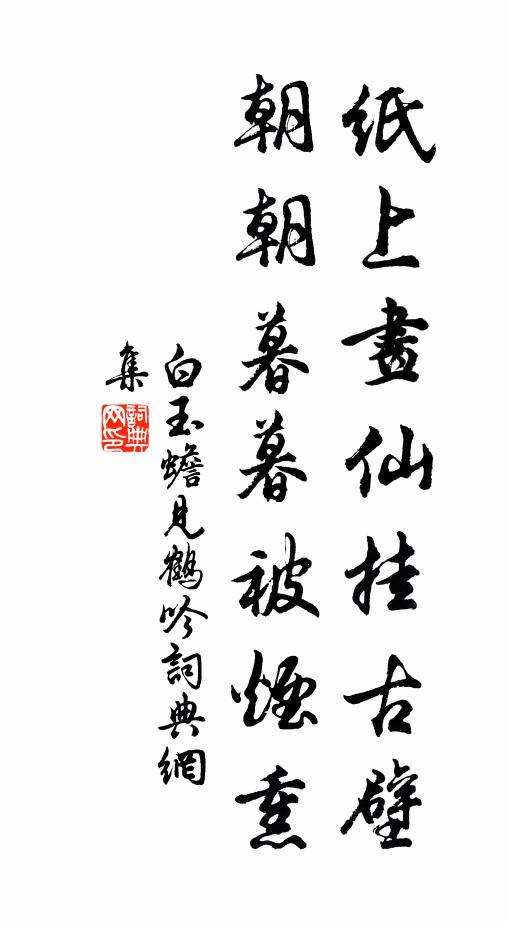 紙上畫仙挂古壁
朝朝暮暮被煙熏
白玉蟾見鶴吟詞典網
集
詞典
网印